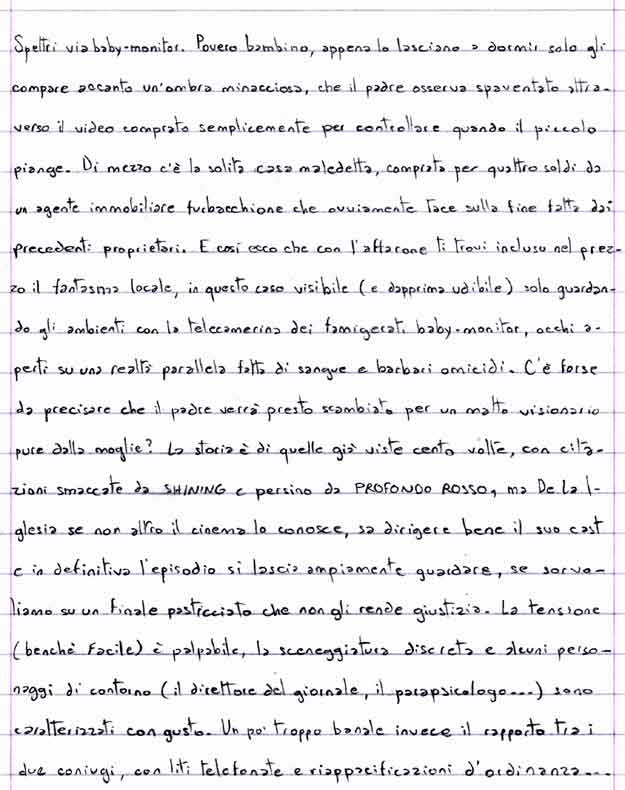 Spettri via baby-monitor. Povero bambino, appena lo lasciano a dormir solo gli
compare accanto un'ombra minacciosa, che il padre osserva spaventato attra-
verso il video comprato semplicemente per controllare quando il piccolo
piange. Di mezzo c'è la solita casa maledetta, comprata per quattro soldi da
un agente immobiliare furbacchione che ovviamente tace sulla fine fatta dai
precedenti proprietari. E così ecco che con l'affarone ti trovi incluso nel prez-
zo il fantasma locale, in questo caso visibile (e dapprima udibile) solo guardan-
do gli ambienti con la telecamerina dei famigerati baby-monitor, occhi a-
perti su una realtà parallela fatta di sangue e barbari omicidi. C'è forse
da precisare che il padre verrà presto scambiato per un matto visionario
pure dalla moglie? La storia è di quelle già viste cento volte, con cita-
zioni smaccate da SHINING e persino da PROFONDO ROSSO, ma De La I-
glesia se non altro il cinema lo conosce, sa dirigere bene il suo cast
e in definitiva l'episodio si lascia ampiamente guardare, se sorvo-
liamo su un finale pasticciato che non gli rende giustizia. La tensione
(benchè facile) è palpabile, la sceneggiatura discreta e alcuni perso-
naggi di contorno (il direttore del giornale, il parapsicologo...) sono
caratterizzati con gusto. Un po' troppo banale invece il rapporto tra i
due coniugi, con liti telefonate e riappacificazioni d'ordinanza...